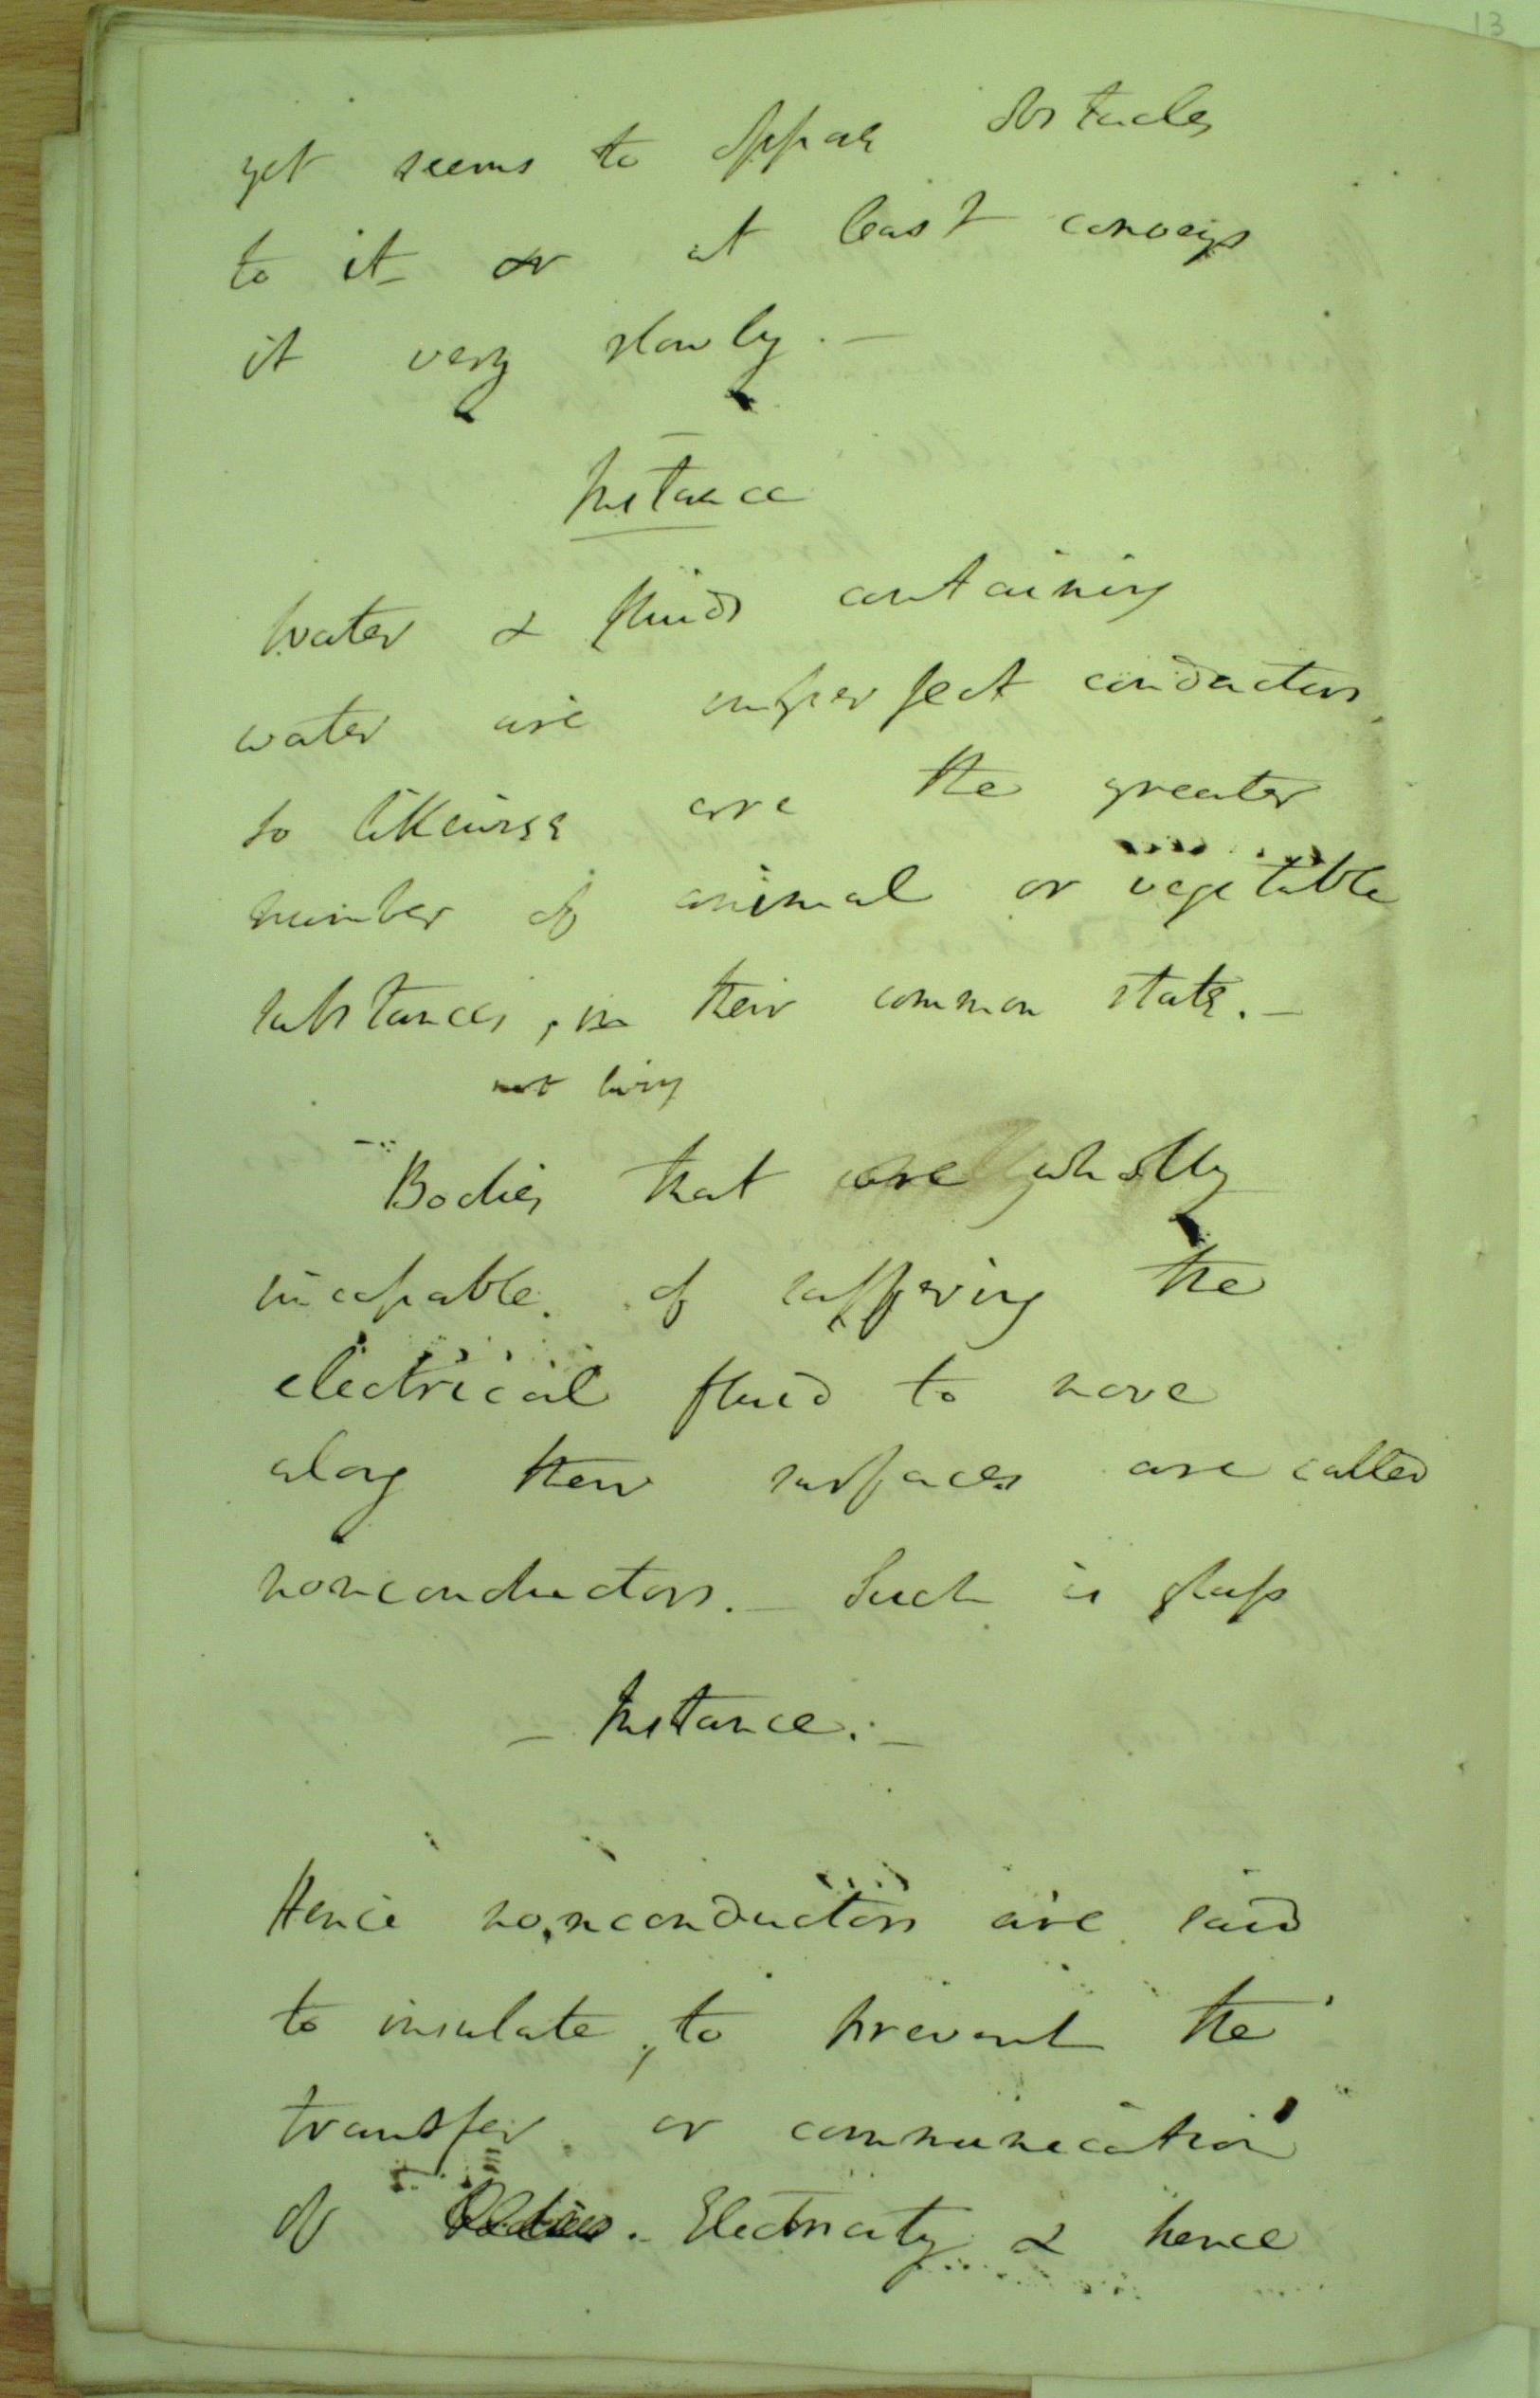 13
yet seems to oppose obstacles
to it or at least conveys
it very slowly. —
Instance
Water & fluids containing
water are imperfect conductors
so likewise are the greater
number of animal or vegetable
substances, in their common state. —
not living
Bodies that are wholly
incapable of suffering the
electrical fluid to move
along their surfaces are called
nonconductors. — Such is glass
— Instance. —
Hence nonconductors are said
to insulate, to prevent the
transfer or communication
of Electricity & hence